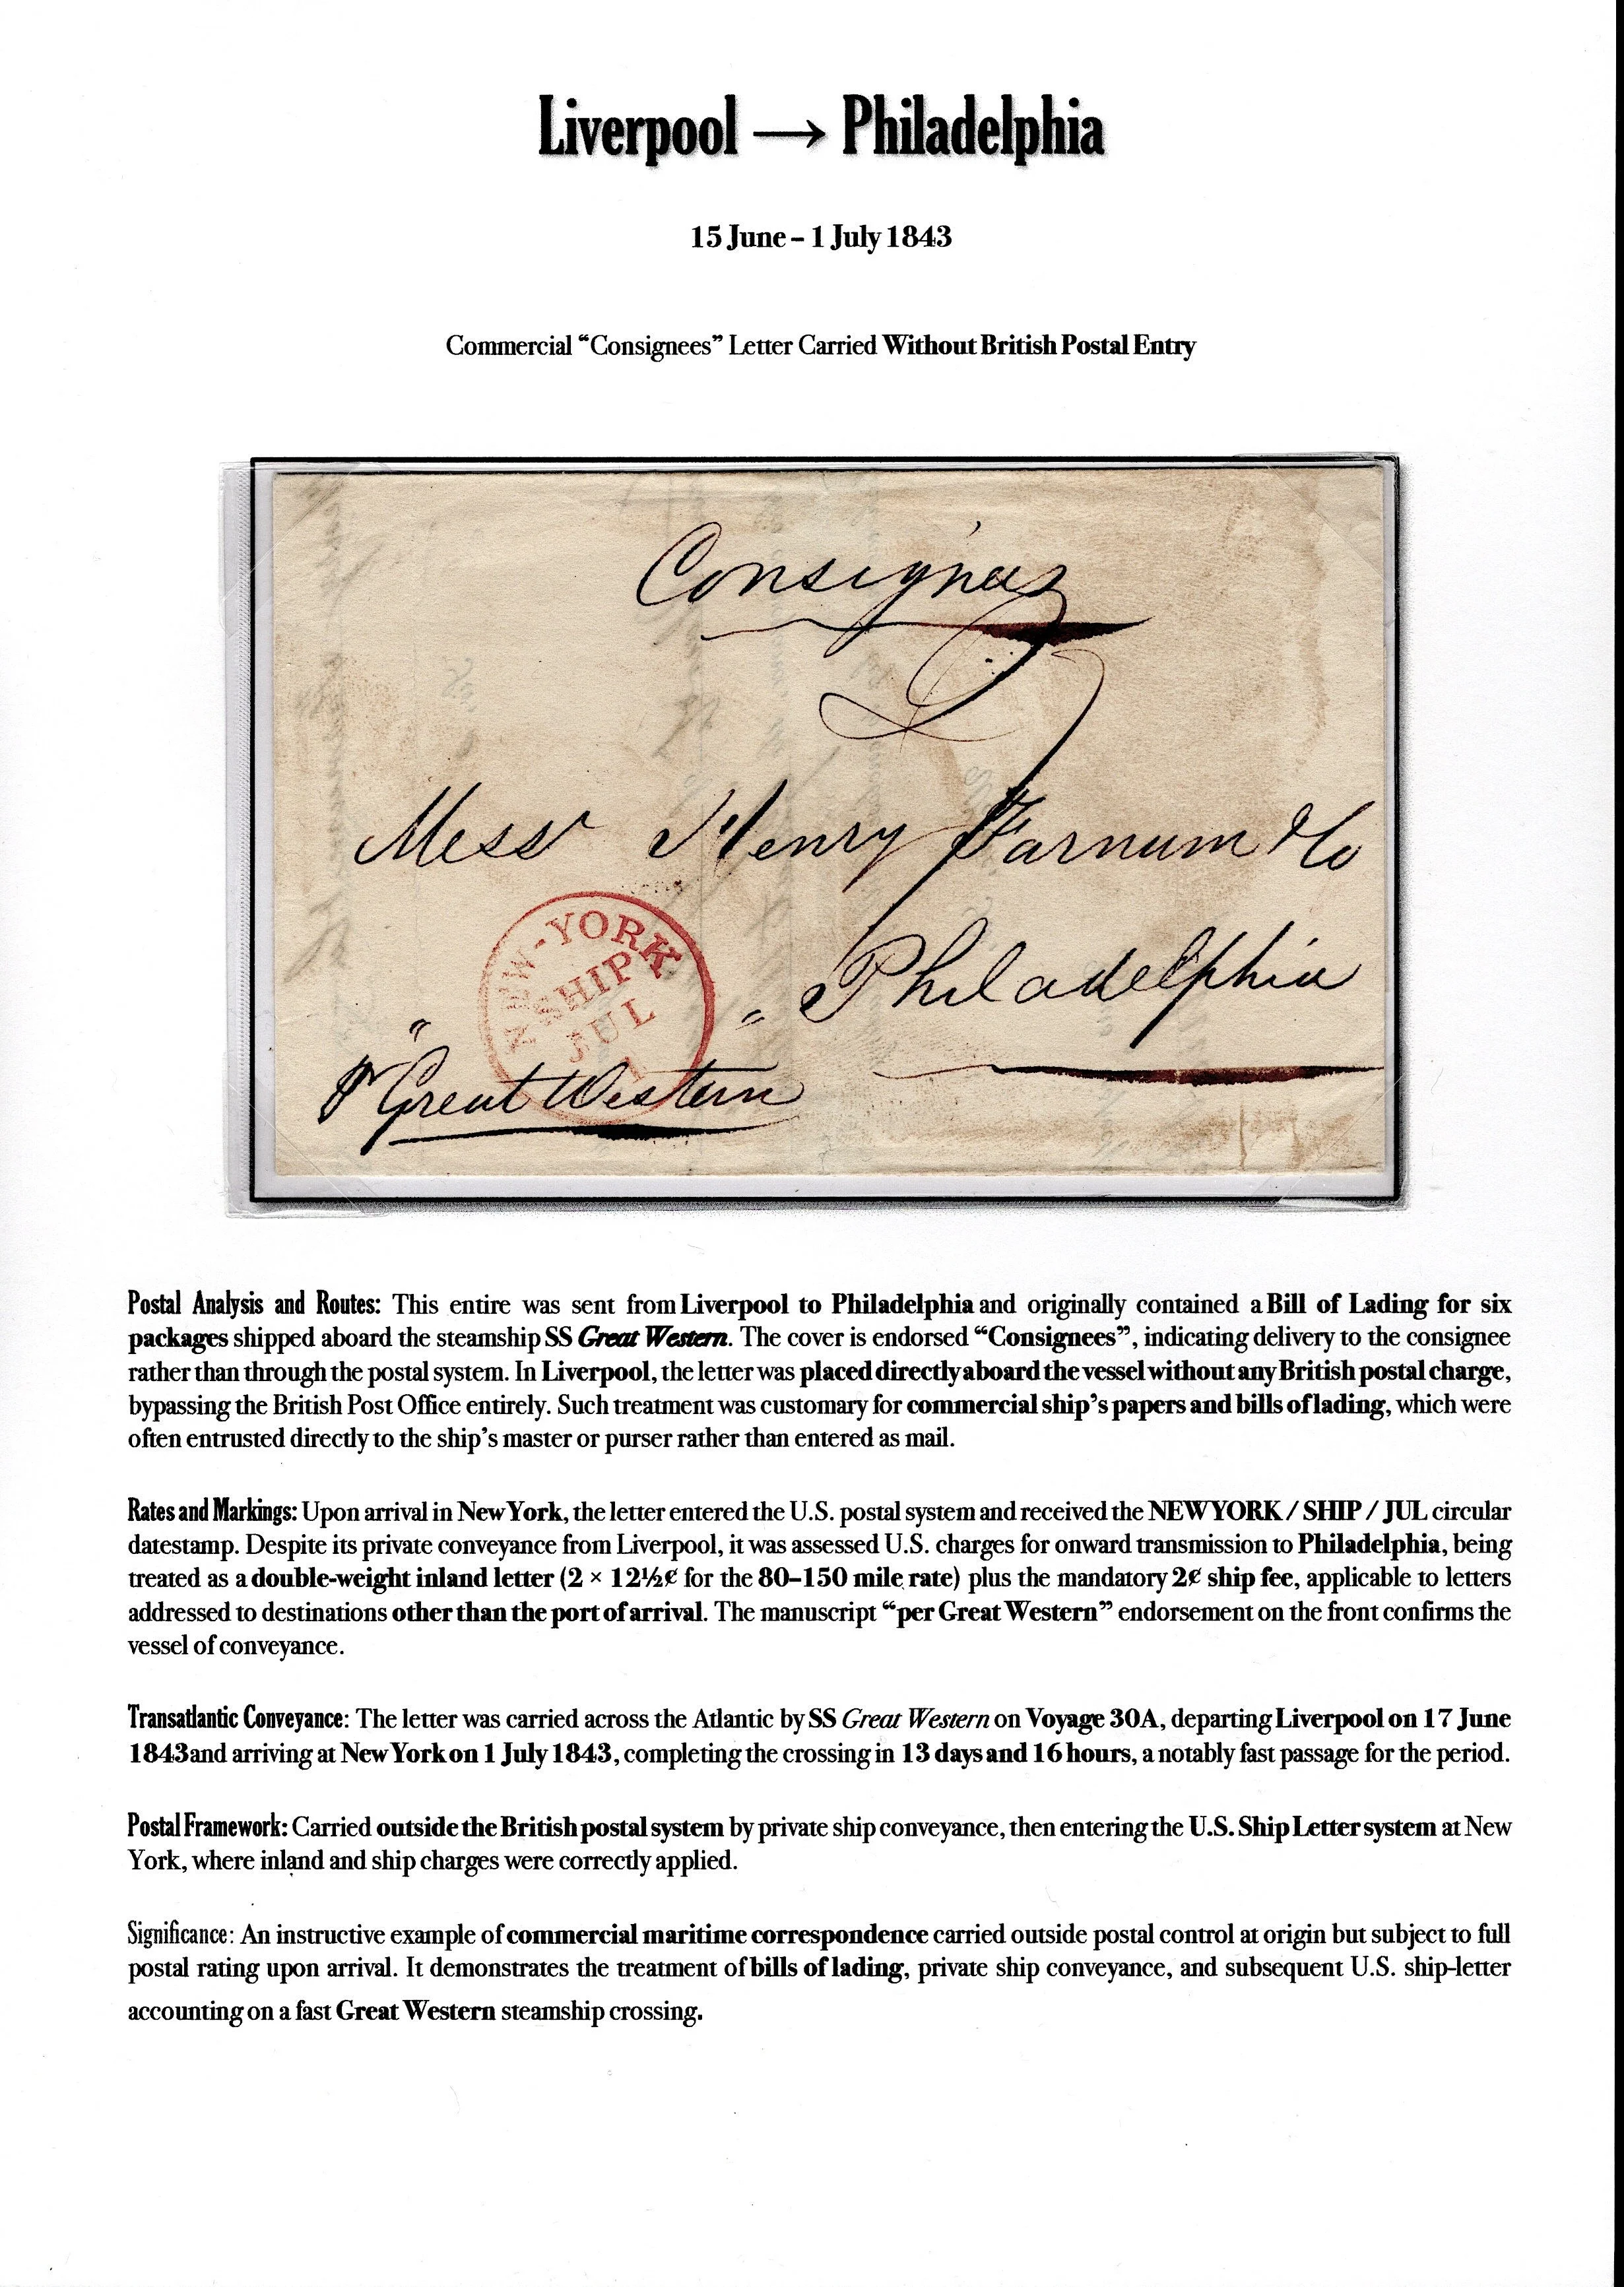 Liverpool → Philadelphia
15 June – 1 July 1843
Commercial “Consignees” Letter Carried Without British Postal Entry
Consignees
Messrs Henry Farnum & Co
Philadelphia
NEW-YORK
SHIP
JUL
1
pr Great Western
Postal Analysis and Routes: This entire was sent from Liverpool to Philadelphia and originally contained a Bill of Lading for six
packages shipped aboard the steamship SS Great Western. The cover is endorsed “Consignees”, indicating delivery to the consignee
rather than through the postal system. In Liverpool, the letter was placed directly aboard the vessel without any British postal charge,
bypassing the British Post Office entirely. Such treatment was customary for commercial ship’s papers and bills of lading, which were
often entrusted directly to the ship’s master or purser rather than entered as mail.
Rates and Markings: Upon arrival in New York, the letter entered the U.S. postal system and received the NEW YORK / SHIP / JUL circular
datestamp. Despite its private conveyance from Liverpool, it was assessed U.S. charges for onward transmission to Philadelphia, being
treated as a double-weight inland letter (2 × 12½¢ for the 80–150 mile rate) plus the mandatory 2¢ ship fee, applicable to letters
addressed to destinations other than the port of arrival. The manuscript “per Great Western” endorsement on the front confirms the
vessel of conveyance.
Transatlantic Conveyance: The letter was carried across the Atlantic by SS Great Western on Voyage 30A, departing Liverpool on 17 June
1843 and arriving at New York on 1 July 1843, completing the crossing in 13 days and 16 hours, a notably fast passage for the period.
Postal Framework: Carried outside the British postal system by private ship conveyance, then entering the U.S. Ship Letter system at New
York, where inland and ship charges were correctly applied.
Significance: An instructive example of commercial maritime correspondence carried outside postal control at origin but subject to full
postal rating upon arrival. It demonstrates the treatment of bills of lading, private ship conveyance, and subsequent U.S. ship-letter
accounting on a fast Great Western steamship crossing.